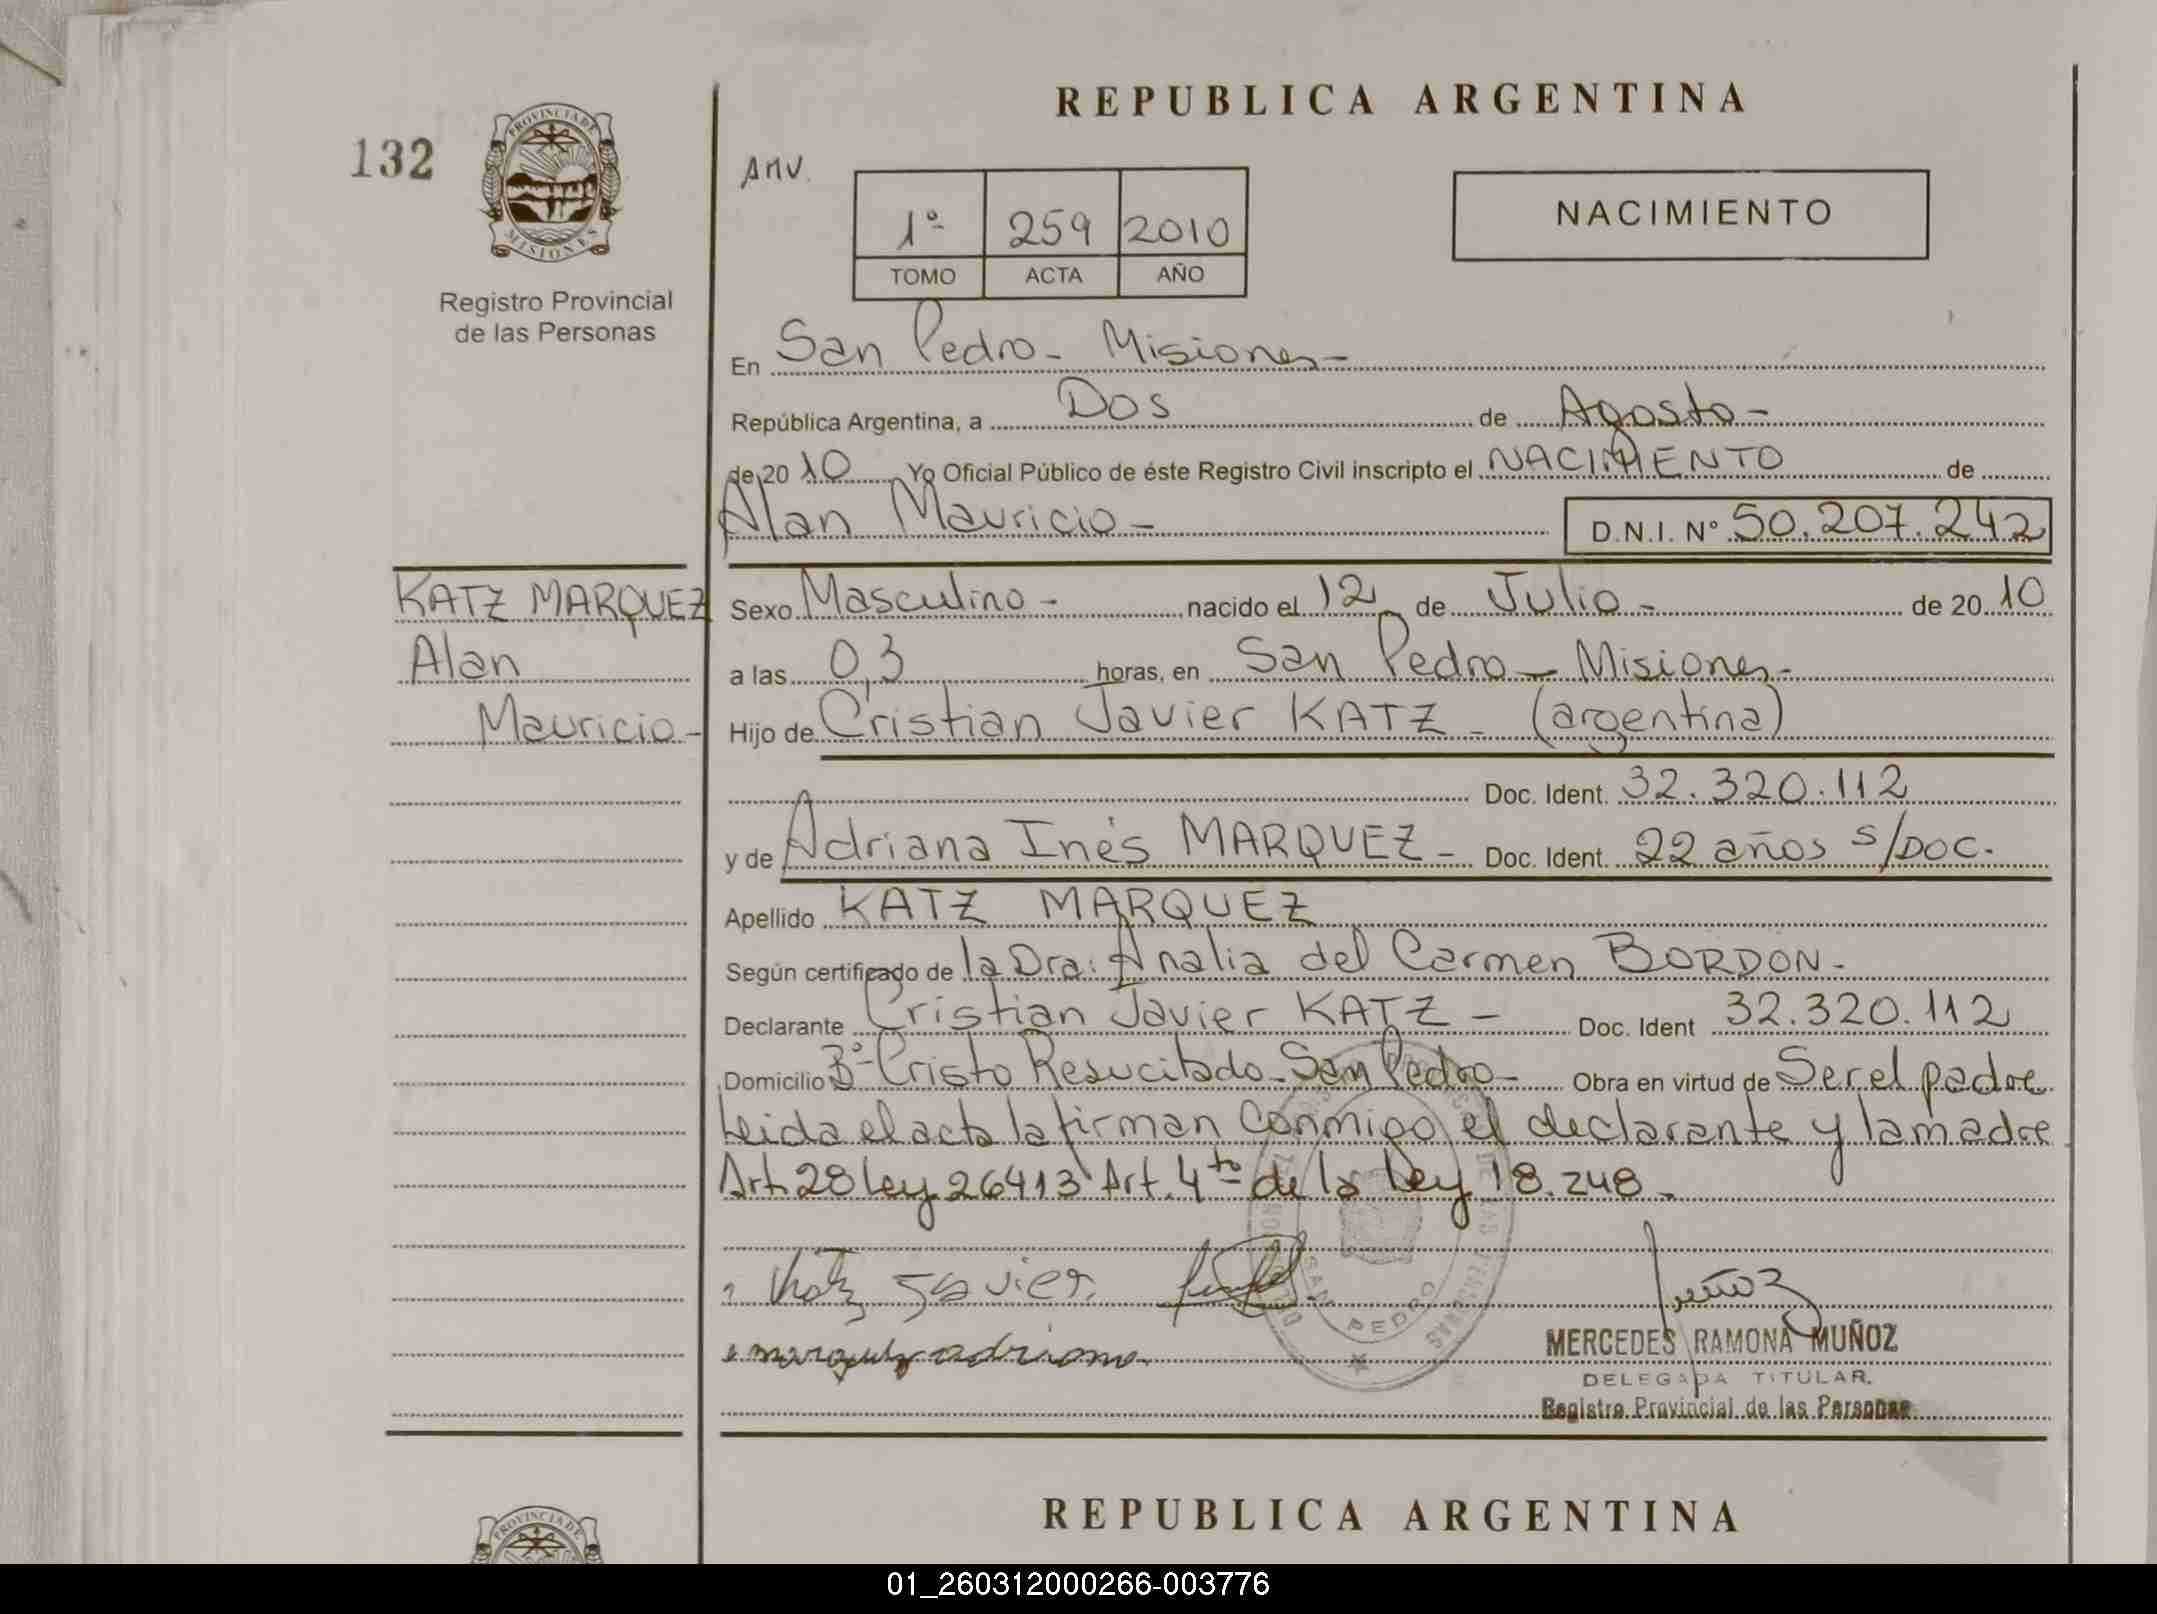 REPUBLICA ARGENTINA
132
PROVINCIA DE
MISIONES
Registro Provincial
de las Personas
AMV.
1º 259 2010
TOMO ACTA AÑO
NACIMIENTO
En San Pedro - Misiones -
República Argentina, a Dos de Agosto -
de 20 10 Yo Oficial Público de éste Registro Civil inscripto el NACIMIENTO de
Alan Mauricio - D.N.I. Nº 50.207.242
KATZ MARQUEZ
Alan
Mauricio -
Sexo Masculino - nacido el 12 de Julio - de 20 10
a las 0,3 horas, en San Pedro - Misiones -
Hijo de Cristian Javier KATZ - (argentina)
Doc. Ident. 32.320.112
y de Adriana Inés MARQUEZ - Doc. Ident. 22 años s/DOC.
Apellido KATZ MARQUEZ
Según certificado de la Dra: Analia del Carmen BORDON -
Declarante Cristian Javier KATZ - Doc. Ident 32.320.112
Domicilio Bº Cristo Resucitado - San Pedro - Obra en virtud de Ser el padre
Leida el acta la firman conmigo el declarante y la madre
Art. 28 Ley 26413 Art. 4to de la Ley 18.248 -
Katz Javier
marquez adriana
SAN PEDRO
Muñoz
MERCEDES RAMONA MUÑOZ
DELEGADA TITULAR
Registro Provincial de las Personas
REPUBLICA ARGENTINA
PROVINCIA DE
01_260312000266-003776